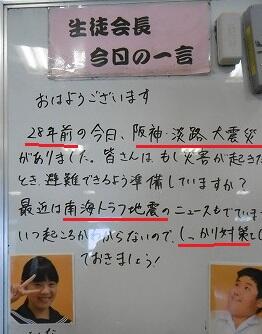 生徒会長
今日の一言
おはようございます
28年前の今日、阪神・淡路大震災
がありました。皆さんは、もし災害が起きた
とき、避難できるよう準備していますか？
最近は南海トラフ地震のニュースもでています
いつ起こるかわからないので、しっかり対策し
ておきましょう！